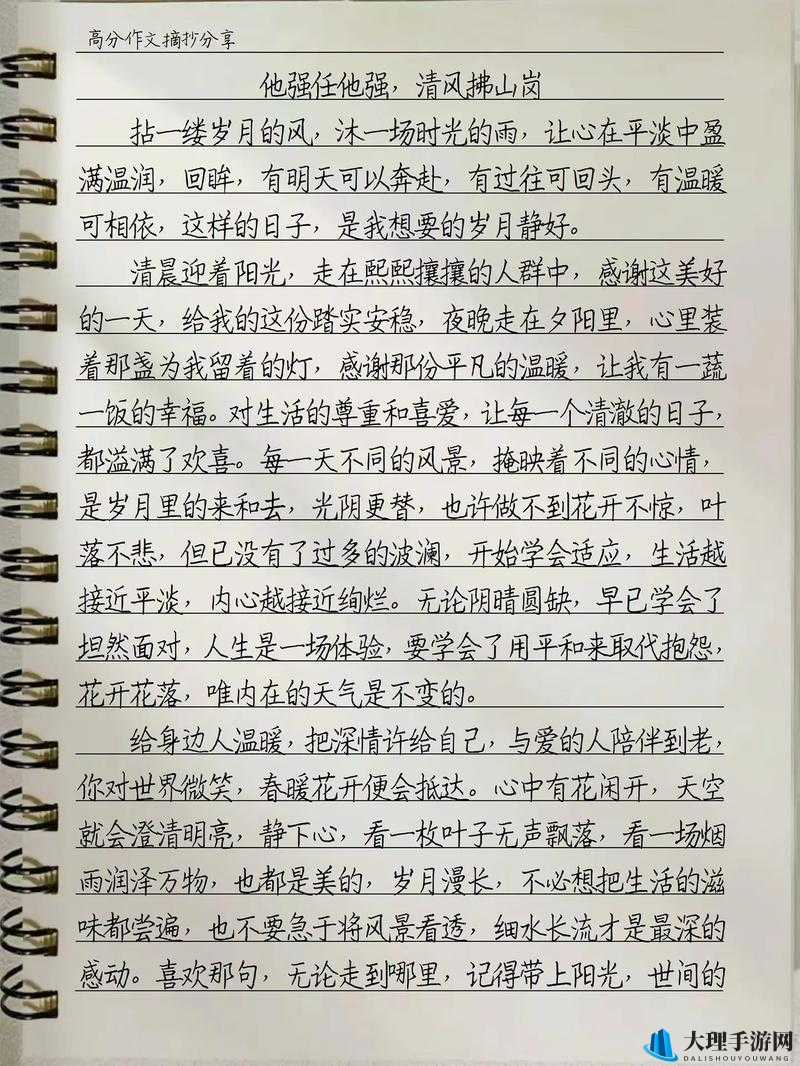 高分作文摘抄分享
他强任他强，清风拂山岗
拈一缕岁月的风，沐一场时光的雨，让心在平淡中盈
满温润，回眸，有明天可以奔赴，有过往可回头，有温暖
可相依，这样的日子，是我想要的岁月静好。
清晨迎着阳光，走在熙熙攘攘的人群中，感谢这美好
的一天，给我的这份踏实安稳，夜晚走在夕阳里，心里装
着那盏为我留着的灯，感谢那份平凡的温暖，让我有一蔬
一饭的幸福。对生活的尊重和喜爱，让每一个清澈的日子，
都溢满了欢喜。每一天不同的风景，掩映着不同的心情，
是岁月里的来和去，光阴更替，也许做不到花开不惊，叶
落不悲，但已没有了过多的波澜，开始学会适应，生活越
接近平淡，内心越接近绚烂。无论阴晴圆缺，早已学会了
坦然面对，人生是一场体验，要学会了用平和来取代抱怨，
花开花落，唯内在的天气是不变的。
给身边人温暖，把深情许给自己，与爱的人陪伴到老，
你对世界微笑，春暖花开便会抵达。心中有花闲开，天空
就会澄清明亮，静下心，看一枚叶子无声飘落，看一场烟
雨润泽万物，也都是美的，岁月漫长，不必想把生活的滋
味都尝遍，也不要急于将风景看透，细水长流才是最深的
感动。喜欢那句，无论走到哪里，记得带上阳光，世间的
大理手游网
DALISHOUYOUWANG